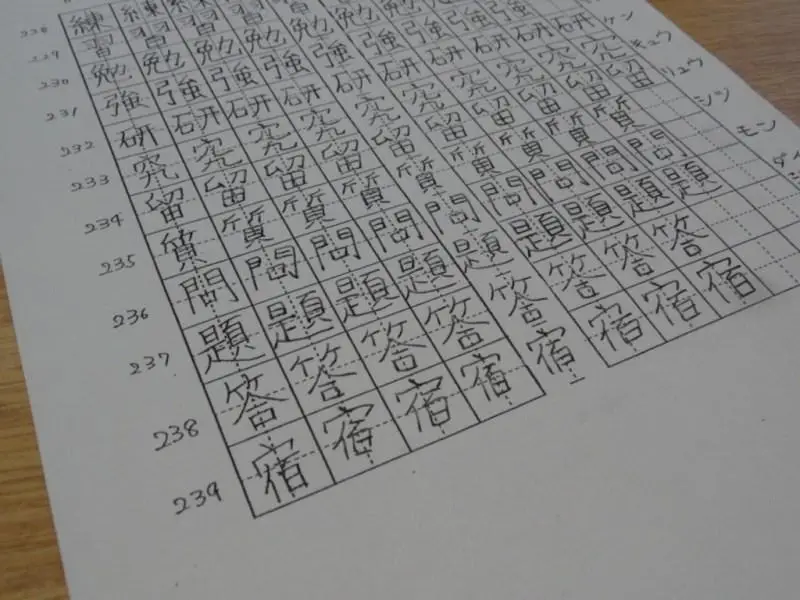 228 練 練 練
229 習 習 習 習
230 勉 勉 勉 勉 勉 勉 勉
231 強 強 強 強 強 強 強 強 強
232 研 研 研 研 研 研 研 研 研 研 ケン
233 究 究 究 究 究 究 究 究 究 究 キュウ
234 留 留 留 留 留 留 留 留 留 留 リュウ
235 質 質 質 質 質 質 質 質 質 シツ
236 問 問 問 問 問 問 問 問 問 モン
237 題 題 題 題 題 題 題 題 題
238 答 答 答 答 答 答 答 答
239 宿 宿 宿 宿 宿 宿 宿 宿